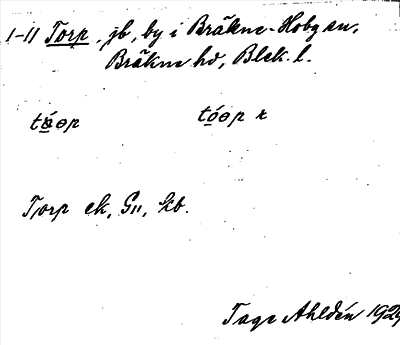 1-11 Torp, jb, by i Bräkne-Hoby sn,
Bräkne hd, Blek. l.
tǻɵp tóɵp r
Torp ek, G11, kb.
Tage Ahldén 1929